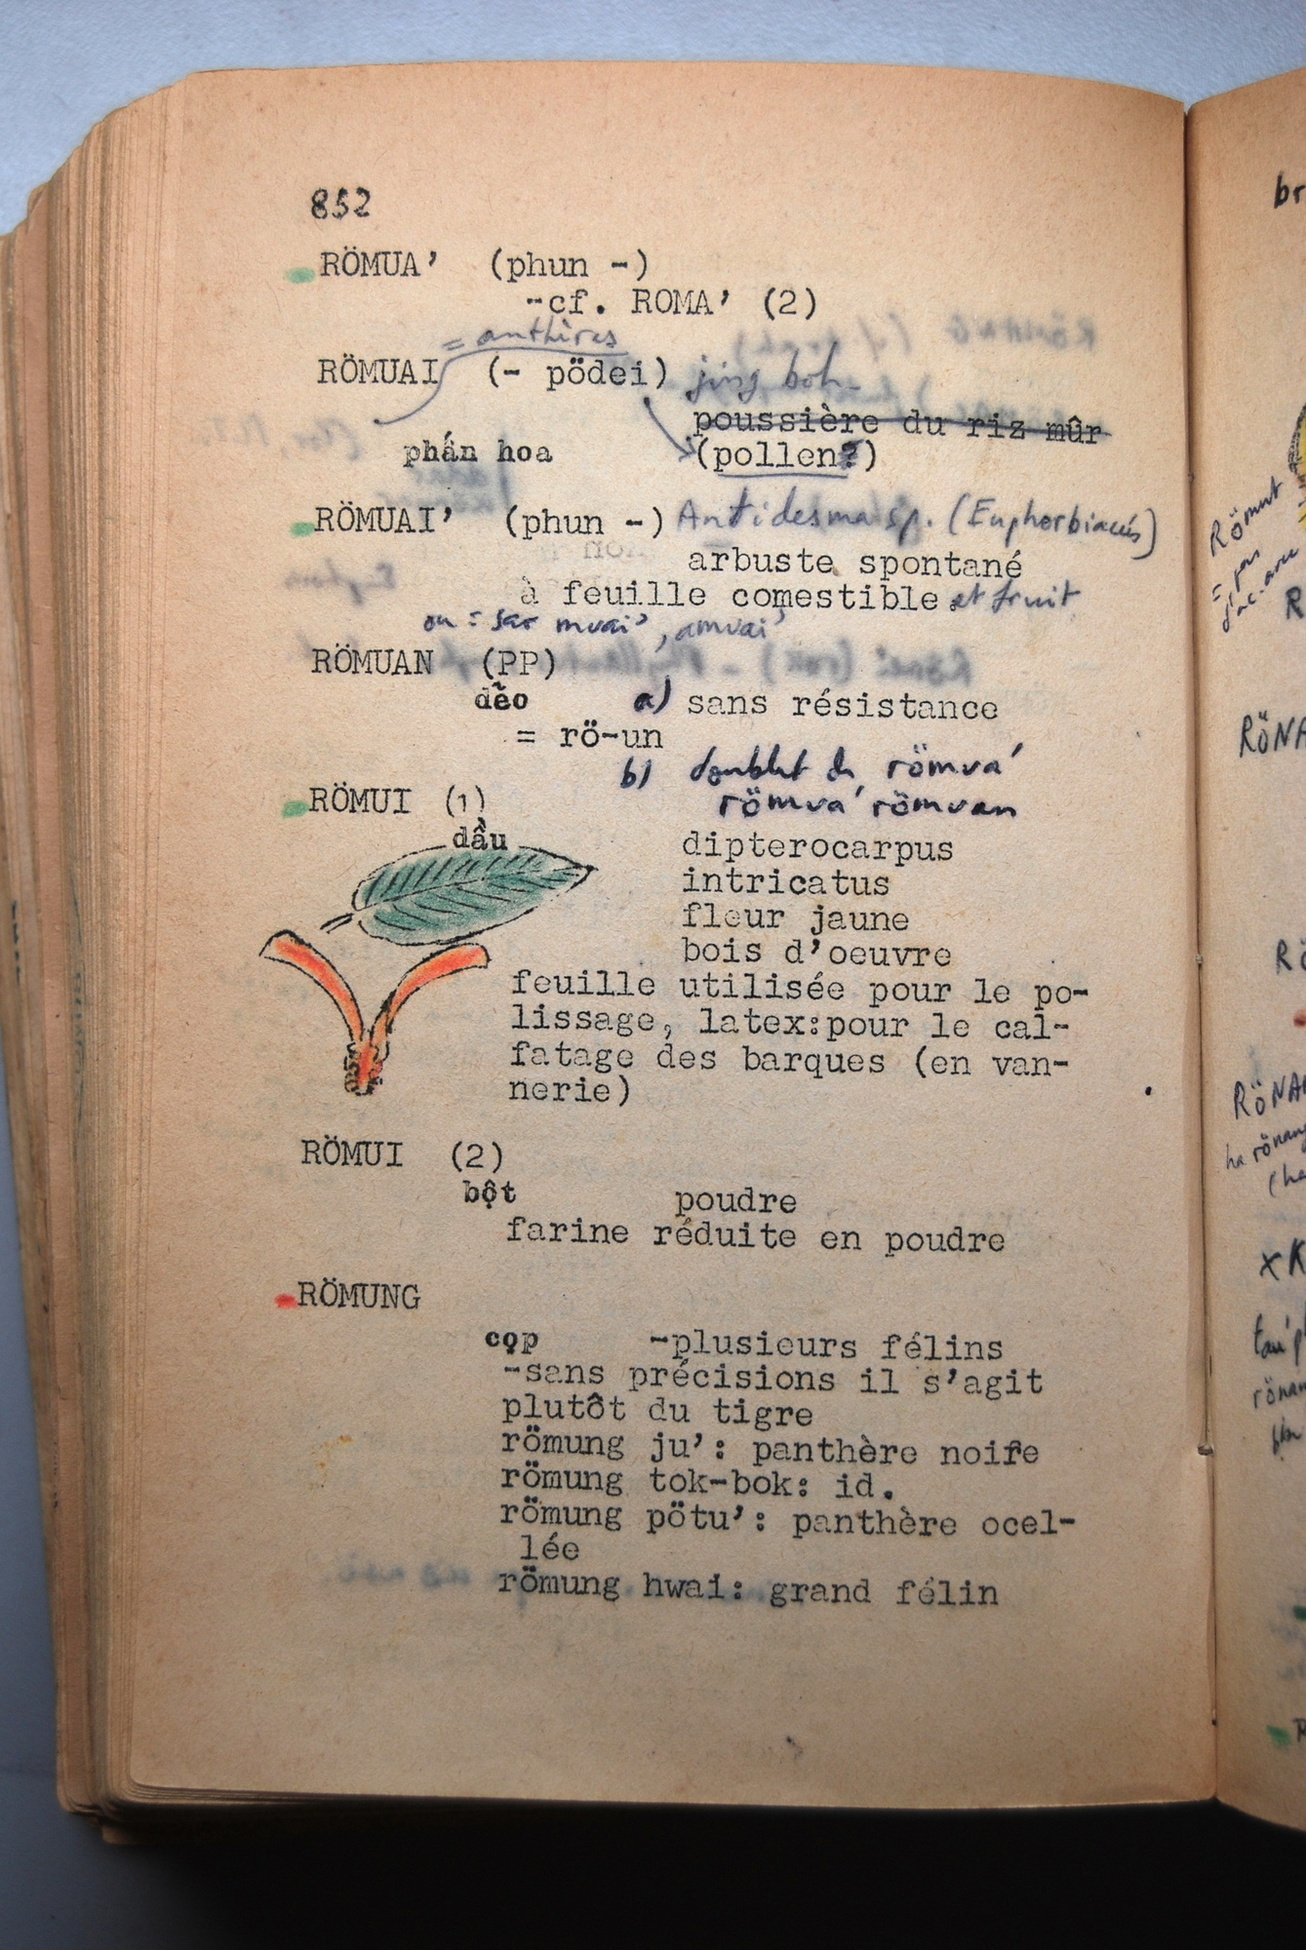 852
RÖMUA' (phun -)
-cf. ROMA' (2)
= anthères
RÖMUAI (- pödei) jing boh
poussière du riz mûr
phấn hoa (pollen?)
RÖMUAI' (phun -) Antidesma sp. (Euphorbiacées)
arbuste spontané
à feuille comestible et fruit
ou = sar muai', amuai'
RÖMUAN (PP)
dẽo a) sans résistance
= rö-un
b) doublet de römua'
RÖMUI (1) römua' römuan
dầu dipterocarpus
intricatus
fleur jaune
bois d'oeuvre
feuille utilisée pour le po-
lissage, latex:pour le cal-
fatage des barques (en van-
nerie)
RÖMUI (2)
bột poudre
farine réduite en poudre
RÖMUNG
cọp -plusieurs félins
-sans précisions il s'agit
plutôt du tigre
römung ju': panthère noire
römung tok-bok: id.
römung pötu': panthère ocel-
lée
römung hwai: grand félin
br
Römunt
RÖNA
RÖ
RÖNA
ha rönang
x K